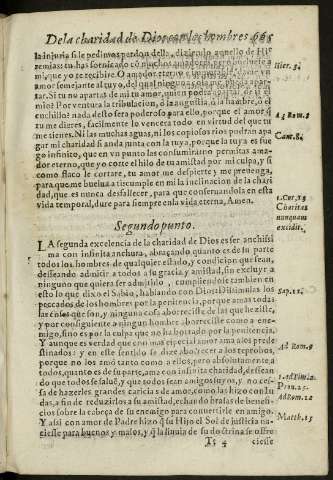 De la charidad de Dios con los hombres 665
la injuria si le pedimos perdon della, diziendo aquello de Hie
remias: tu has fornicado cō muchos amadores, pero bueluete a
mi, que yo te recibire. O amador eterno
amor semejante al tuyo, del qual ninguno
ar. Si tu no apartas de mi tu amor, quien podra
mio? Por ventura la tribulacion, ò la angustia, ò la hambre, ò el
cuchillo? nada desto sera poderoso para ello, porque el amor q̄
tu me dieres, facilmente lo vencera todo en virtud del que tu
me tienes. Ni las muchas aguas, ni los copiosos rios podran apa
gar mi charidad si anda junta con la tuya, porque la tuya es fue
go infinito, que en vn punto las consumira: no permitas ama-
dor eterno, que yo corte el hilo de tu amistad por mi culpa, y si
como flaco le cortare, tu amor me despierte y me preuenga,
para que me buelua a ti: cumple en mi la inclinacion de la chari
dad, que es nunca desfallecer, para que conseruandola en esta
vida temporal, dure para siempre en la vida eterna, Amen.
Segundo punto.
LA segunda excelencia de la charidad de Dios es ser anchissi
ma con infinita anchura, abraçando quanto es de su parte
todos los hombres de qualquier estado, y condicion que sean,
desseando admitir a todos a su gracia y amistad, sin excluyr a
ninguno que quiera ser admitido, cumpliendose tambien en
esto lo que dixo el Sabio, hablando con Dios: Dissimulas los
peccados de los hombres por la penitencia, porque amas todas
las cosas que son, y ninguna cosa aborreciste de las que heziste,
y por consiguiente a ningun hombre aborreciste como a ene-
migo, sino es por la culpa que ha borrado por la penitencia.
Y aunque es verdad que con mas especial amor ama a los prede
stinados: y en este sentido se dize aborrecer a los reprobos,
porque no los amò tanto como a ellos, pero absolutamente a
todos, quanto es de su parte, ama con infinita charidad, dessean
do que todos se salué, y que todos sean amigos suyos, y no cef-
sa de hazerles grandes caricias de amor, como las hizo con Iu
das, a fin de reduzirlos a su amistad, echando brasas de benefi-
cios sobre la cabeça de su enemigo para conuertirle en amigo.
Y assi con amor de Padre hizo q̄ su Hijo el Sol de justicia na-
ciesse para buenos y malos, y q̄ la lluuia de su doctrina se offre
ciesse
Hier. 3.
Ad Rom. 8
Cant. 8.
1. Cor. 13
Charitas
nunquam
excidit.
Sap. 11.
Ad Rom. 9
1. ad Tim. 2.
Prou. 25.
Ad Rom. 12
Matth. 5